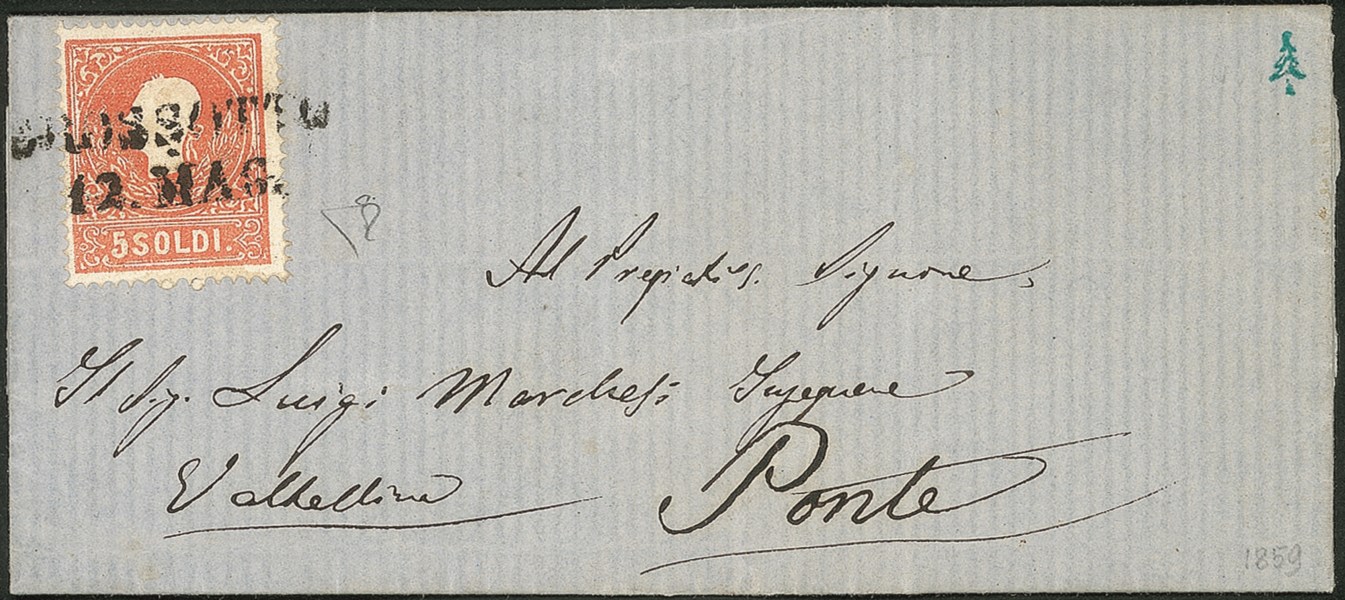 GROSSOTTO
12. MAG.
5 SOLDI.
Al Pregiatis. Signore,
Il Sig. Luigi Marchesi Ingegnere
Valtellina Ponte
1859